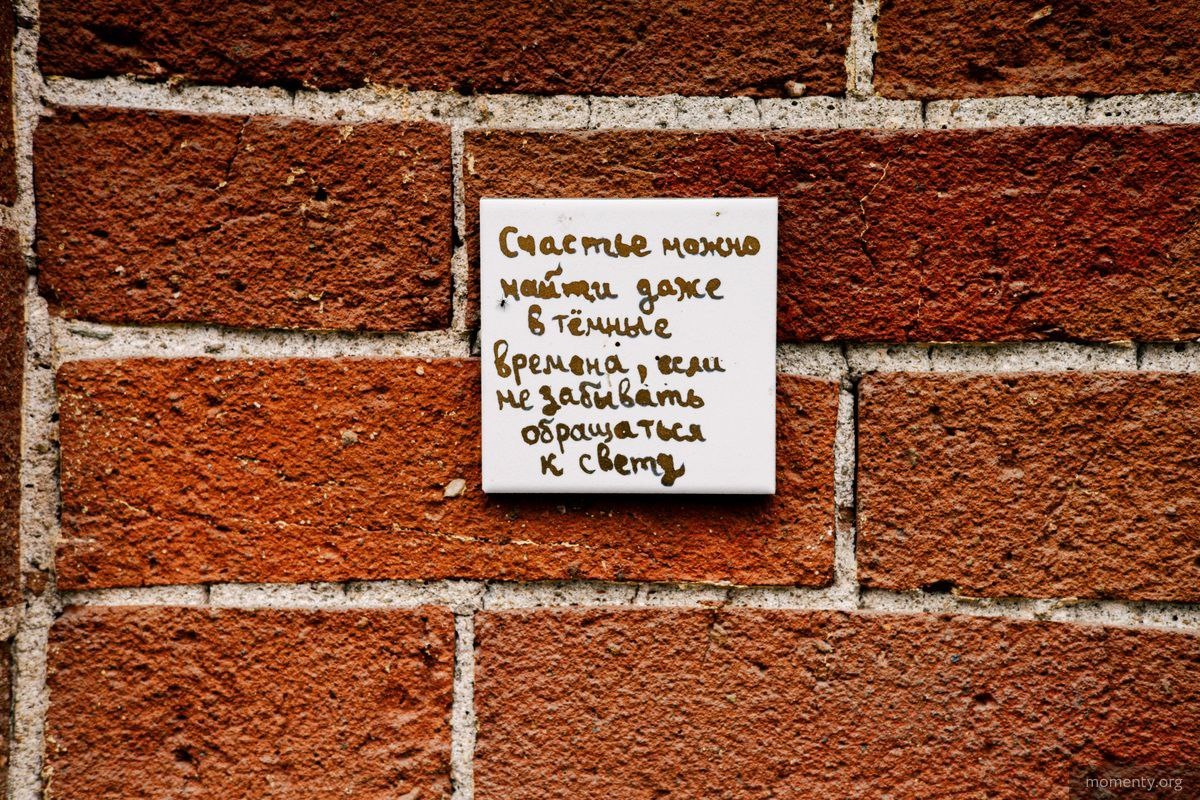 Счастье можно
найти даже
в тёмные
времена, если
не забывать
обращаться
к свету
momenty.org